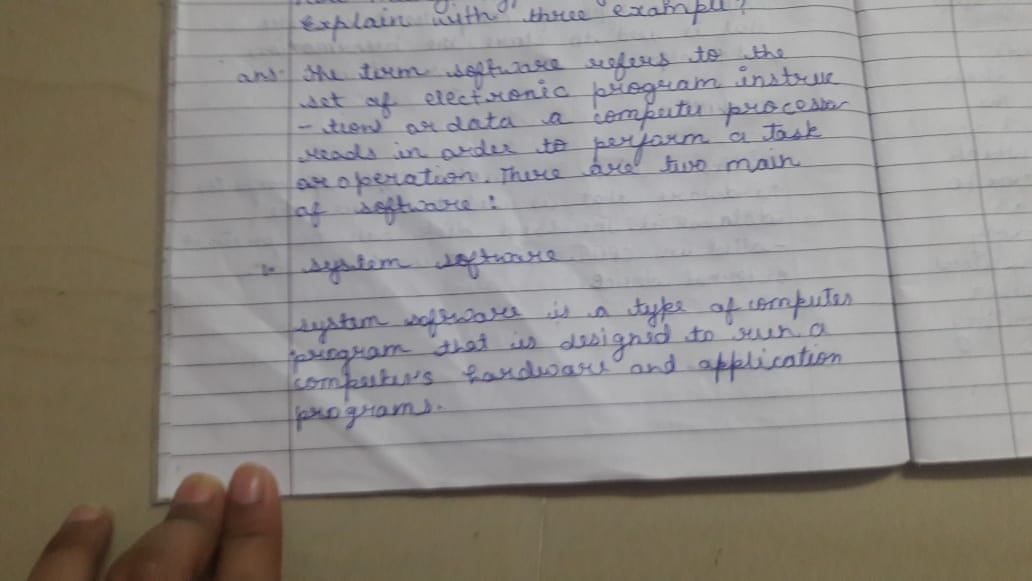 Explain with three example?
ans- the term software refers to the
set of electronic program instruc
-tions or data a computer processor
reads in order to perform a task
or operation. There are two main
of software:
1. system software
system software is a type of computer
program that is designed to run a
computer's hardware and application
programs.